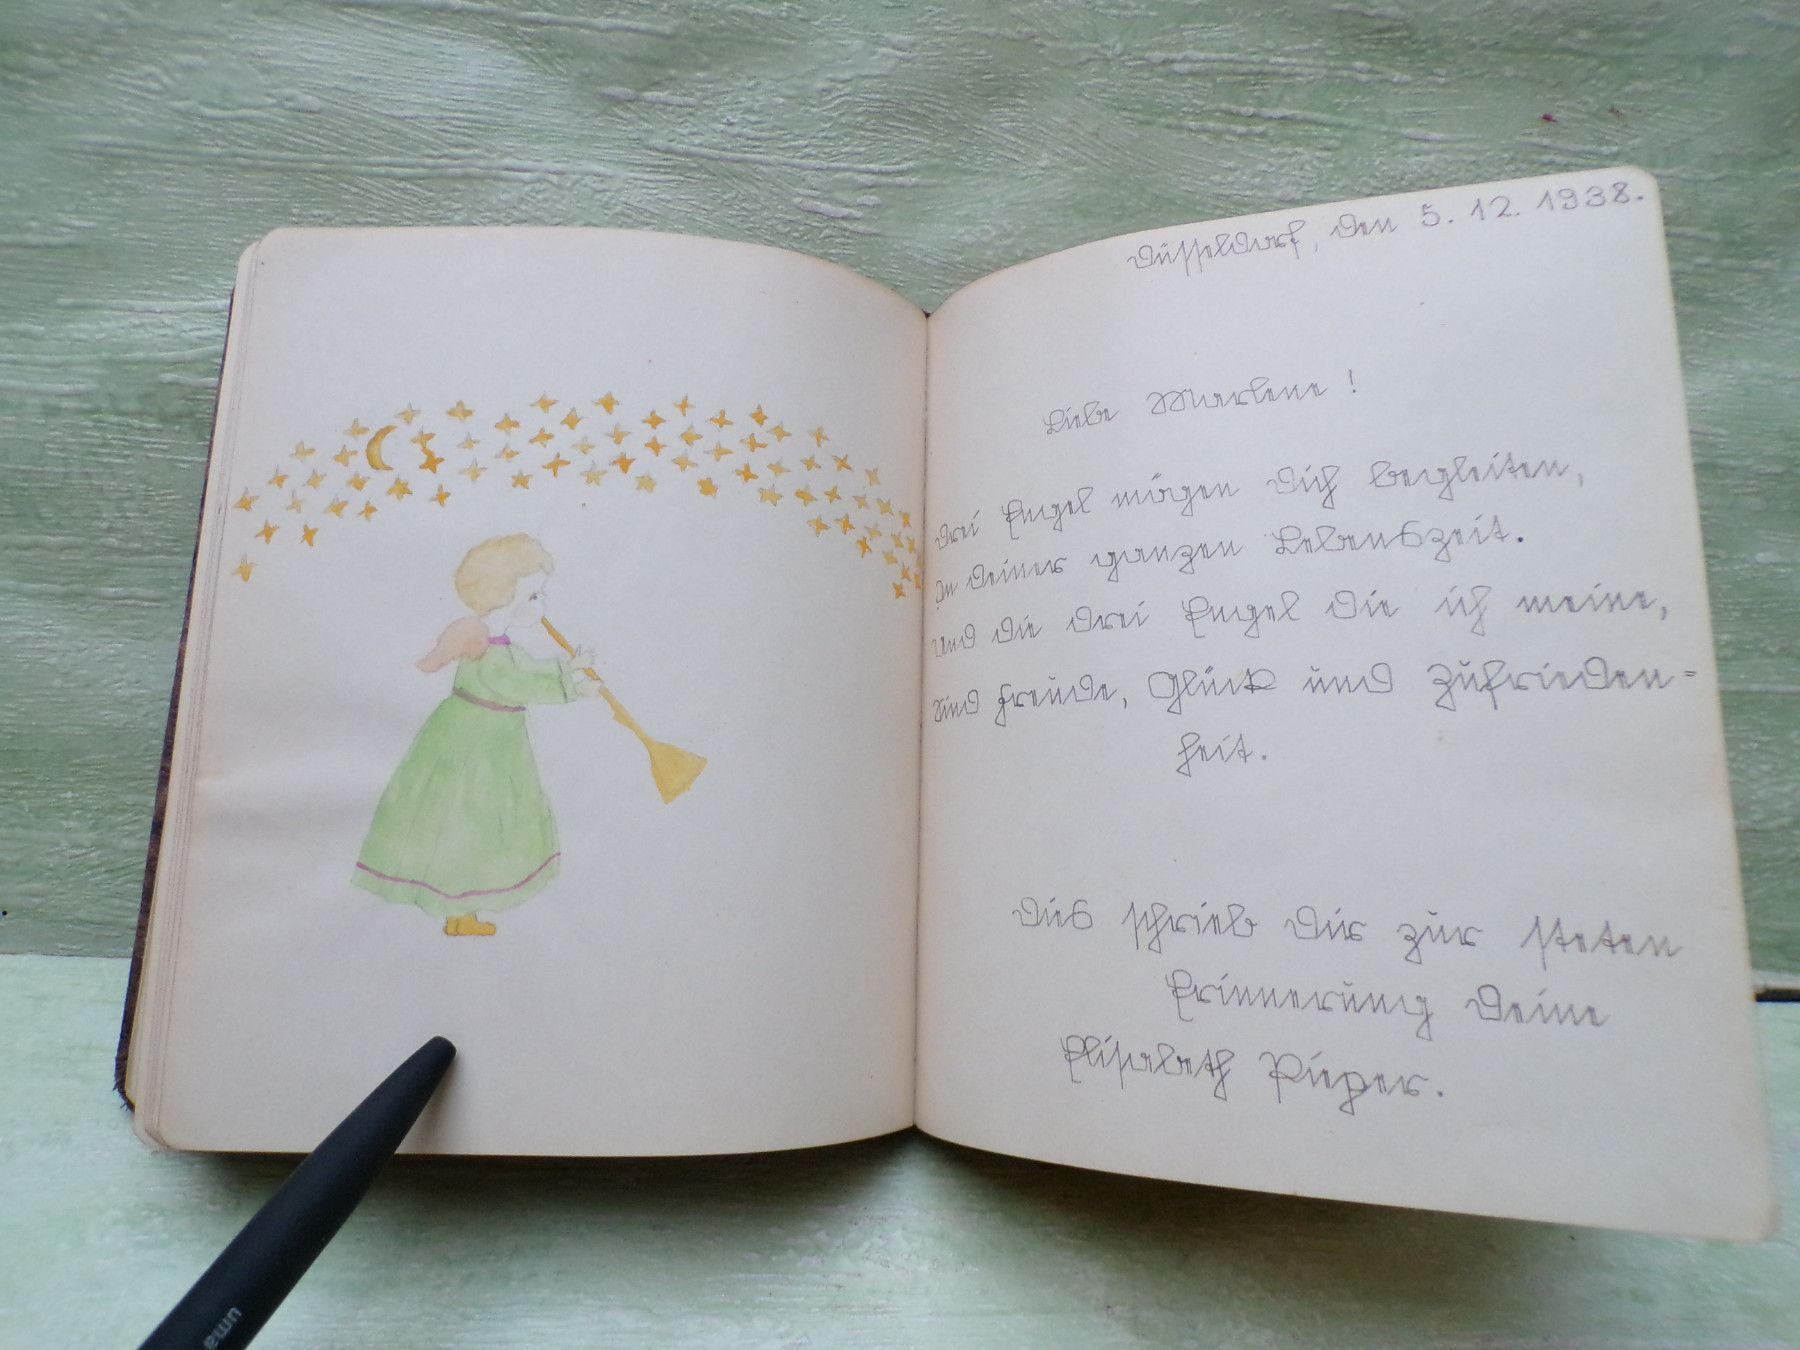 Düsseldorf, den 5. 12. 1938.
Liebe Marlene!
Drei Engel mögen Dich begleiten,
In Deiner ganzen Lebenszeit.
Und die drei Engel die ich meine,
Sind Freude, Glück und Zufrieden=
heit.
Dies schrieb Dir zur steten
Erinnerung Deine
Elisabeth Pieper.
uma